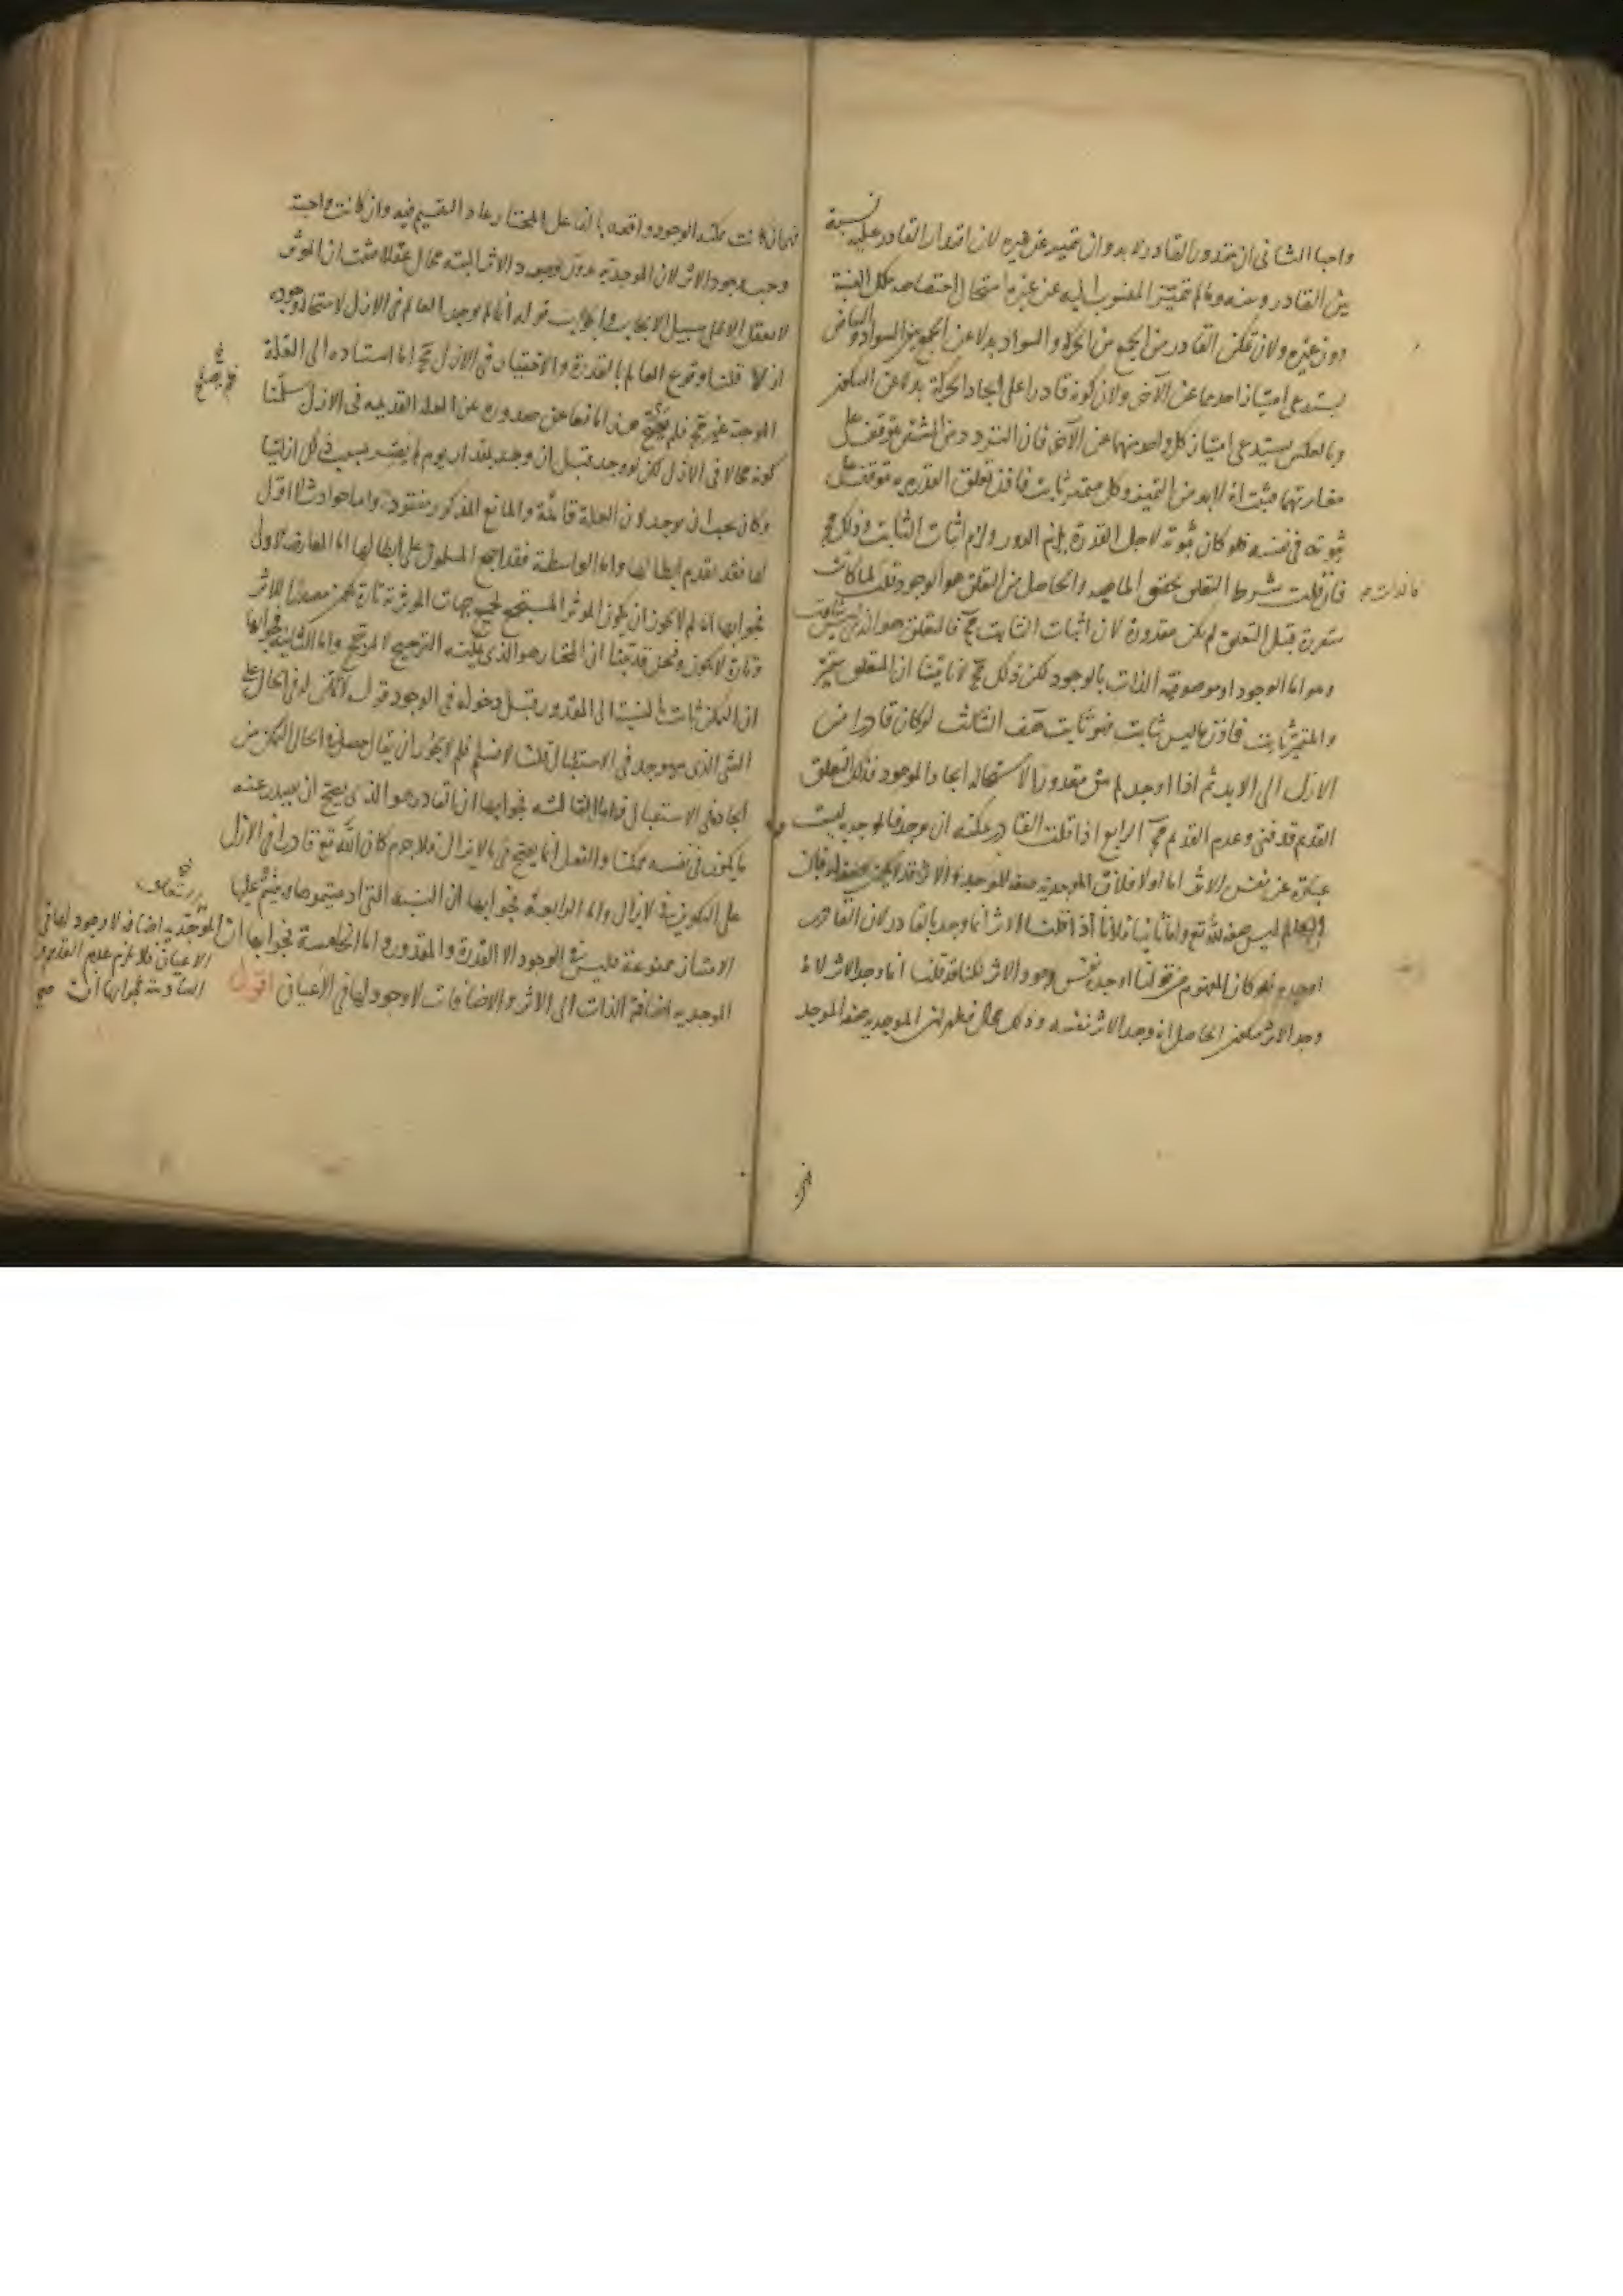 واجبا الثانى ان مقدور القادر لا بد وان يتميز عن غيره لان اقتدار القادر عليه نسبة
بين القادر وبينه وما لم يتميز المنسوب اليه عن غيره استحال اختصاصه بتلك النسبة
دون غيره ولان تمكن القادر من الجمع بين الحركة والسواد بدلا عن الجمع بين السواد والبياض
يستدعى امتياز احدهما عن الآخر ولان كونه قادرا على ايجاد الحركة بدلا عن السكون
وبالعكس يستدعى امتياز كل واحد منهما عن الآخر فان التردد بين الشيئين يتوقف على
مغايرتهما فثبت انه لا بد من التميز وكل متميز ثابت فاذن تعلق القدرة به يتوقف على
ثبوته فى نفسه فلو كان ثبوته لاجل القدرة يلزم الدور ولزم اثبات الثابت وذلك مح
فان قلت شرط التعلق تحقق الماهية والحاصل من التعلق هو الوجود قلت لما كانت
متقررة قبل التعلق لم تكن مقدورة لان اثبات الثابت مح فالمتعلق هو الذى ليس بثابت
وهو اما الوجود او موصوفية الذات بالوجود لكن ذلك مح لانا بينا ان المتعلق متميز
والمتميز ثابت فاذن ما ليس بثابت فهو ثابت هف الثالث لو كان قادرا من
الازل الى الابد ثم اذا اوجد لم يبق مقدورا لاستحالة ايجاد الموجود فذلك التعلق
القديم قد فنى وعدم القديم مح الرابع اذا قلت القادر يمكنه ان يوجد فالموجدية ليست
عبارة عن نفس الاثر اما اولا فلان الموجدية صفة للموجد والاثر قد لا يكون صفة له فان
العالم ليس صفة لله تع واما ثانيا فلانا اذا قلنا الاثر انما وجد بالقادر لان القادر
اوجده فلو كان المفهوم من قولنا اوجده نفس وجود الاثر لكنا قد قلنا انما وجد الاثر لانه
وجد الاثر فيكون الحاصل انه وجد الاثر نفسه وذلك محال فظهر ان الموجدية صفة الموجد
فهى ان كانت ممكنة الوجود واقعة بالفاعل المختار عاد التقسيم فيه وان كانت واجبة
وجب وجود الاثر لان الموجدية بدون وجود الاثر البتة محال عقلا فثبت ان المؤثر
لا يعقل الا على سبيل الايجاب والجواب قوله انما لم يوجد العالم فى الازل لاستحالة وجوده
ازلا قلنا وقوع العالم بالقدرة والاختيار فى الازل مح اما استناده الى العلة
الموجبة غير مح فلم يصلح هذا مانعا عن صدوره عن العلة القديمة فى الازل سلمنا
كونه محالا فى الازل لكن لو وجد قبل ان وجد بمقدار يوم لم يصر بسبب ذلك ازليا
وكان يجب ان يوجد لان العلة قائمة والمانع المذكور مفقود واما حوادث لا اول
لها فقد تقدم ابطالها واما الواسطة فقد اجمع المسلمون على ابطالها اما المعارضة الاولى
فجوابها انه لم لا يجوز ان يكون المؤثر المستجمع لجميع جهات المؤثرية تارة يكون مصدرا للاثر
وتارة لا يكون ونحن قد بينا ان المختار هو الذى يمكنه الترجيح لا لمرجح واما الثانية فجوابها
ان التمكن ثابت بالنسبة الى المقدور قبل دخوله فى الوجود قوله لا تمكن له فى الحال على
الشئ الذى سيوجد فى الاستقبال قلنا لا نسلم فلم لا يجوز ان يقال حصل فى الحال التمكن من
ايجاده فى الاستقبال واما الثالثة فجوابها ان القادر هو الذى يصح ان يصدر عنه
ما يكون فى نفسه ممكنا والفعل انما يصح فى ما لا يزال فلا جرم كان الله تع قادرا فى الازل
على التكوين فى لا يزال واما الرابعة فجوابها ان النسبة التى
الامتياز ممنوعة فليس فى الوجود الا القدرة والمقدور واما الخامسة فجوابها ان
الموجدية اضافة الذات الى الاثر والاضافات لا وجود لها فى الاعيان اقول
الموجدية اضافة لا وجود لها فى
الاعيان فلا يلزم عدم القديم و
السادسة فجوابها ان صح